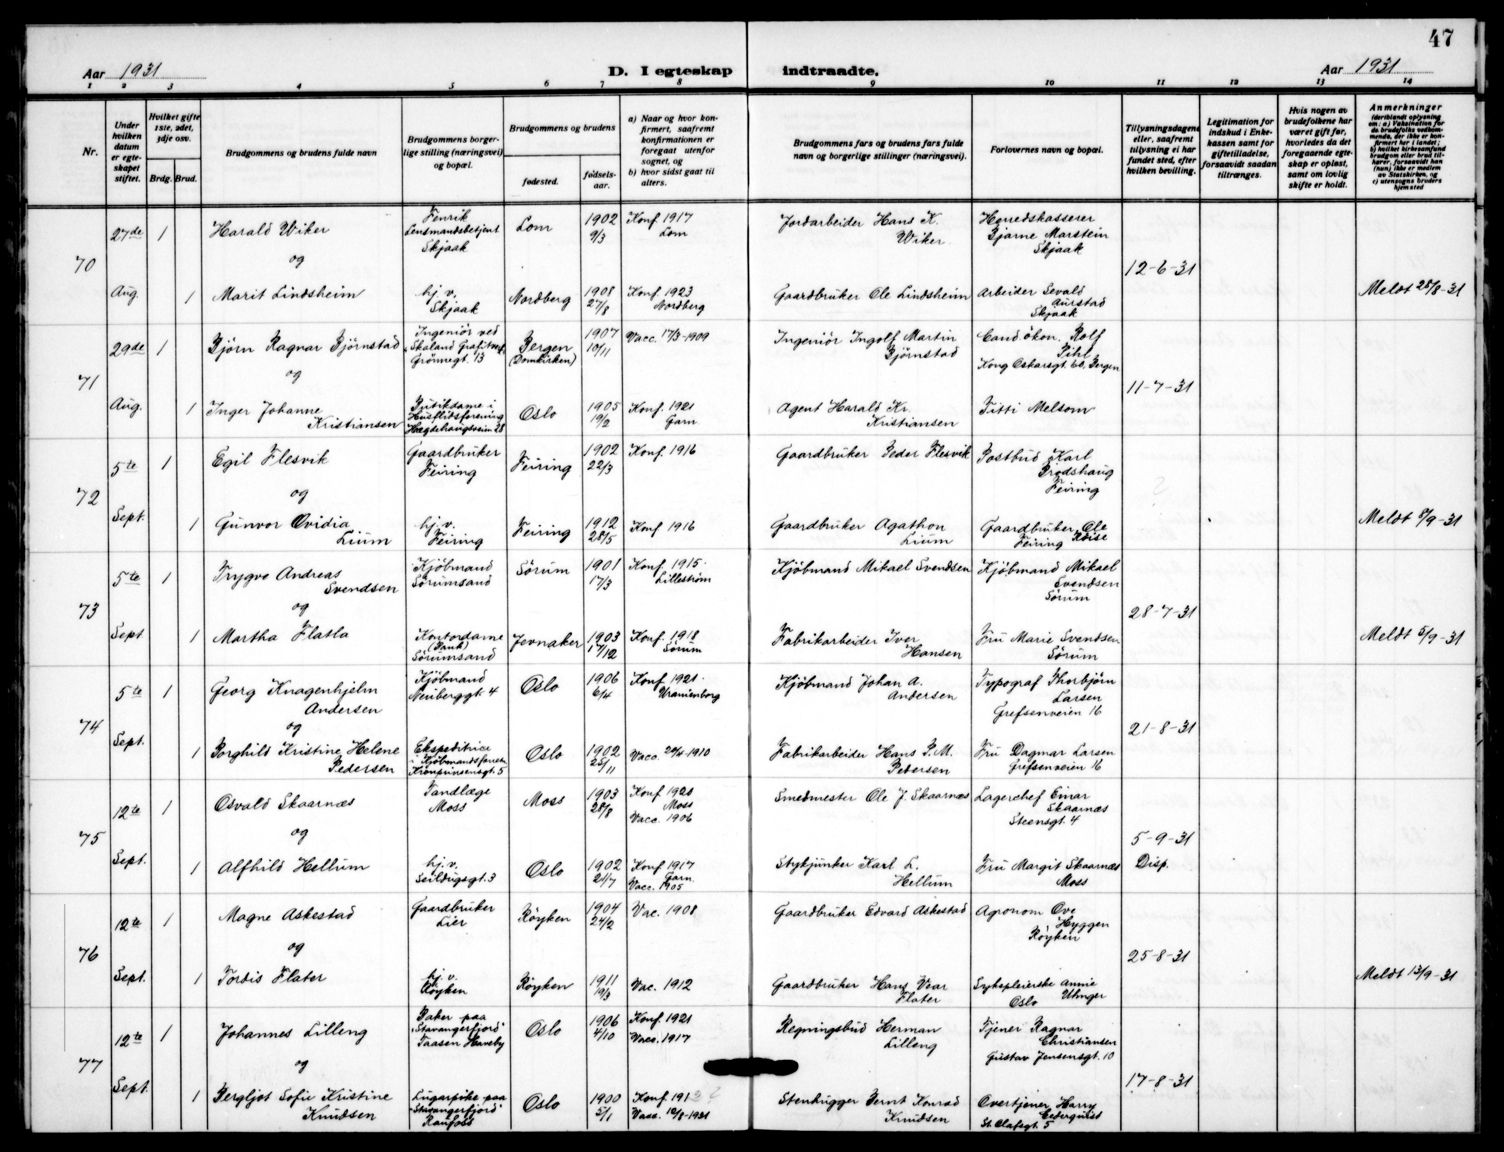 47
Aar 1931
D. I egteskap indtraadte.
Aar 1931
1 2 3 4 5 6 7 8 9 10 11 12 13 14
Nr.
Under hvilken datum er egteskapet stiftet.
Hvilket gifte 1ste, 2det, 3dje osv.
Brdg. Brud.
Brudgommens og brudens fulde navn
Brudgommens borgerlige stilling (næringsvei) og bopæl.
Brudgommens og brudens
fødested.
fødselsaar.
a) Naar og hvor konfirmert, saafremt konfirmationen er foregaat utenfor sognet, og
b) hvor sidst gaat til alters.
Brudgommens fars og brudens fars fulde navn og borgerlige stillinger (næringsvei).
Forlovernes navn og bopæl.
Tillysningsdagene eller, saafremt tillysning ei har fundet sted, efter hvilken bevilling.
Legitimation for indskud i Enkekassen samt for giftetilladelse, forsaavidt saadan tiltrænges.
Hvis nogen av brudefolkene har været gift før, hvorledes da det foregaaende egteskap er opløst, samt om lovlig skifte er holdt.
Anmerkninger
70
27de Aug.
1 Harald Wiker
Fenrik Lensmandsbetjent Skjaak
Lom
1902 9/3
Konf 1917 Lom
Jordarbeider Hans K. Wiker
Herredskasserer Bjarne Marstein Skjaak
og
12-6-31
1 Marit Lindsheim
hj. v. Skjaak
Nordberg
1908 27/8
Konf. 1923 Nordberg
Gaardbruker Ole Lindsheim
Arbeider Sevald Aurstad Skjaak
Meldt 28/8-31
71
29de Aug.
1 Bjørn Ragnar Bjørnstad
Ingeniör ved Skaland Grafitverk Grönnegt. 13
Bergen (Domkirken)
1907 10/11
Vacc. 17/3-1909
Ingeniör Ingolf Martin Bjørnstad
Cand. ökon. Rolf Pihl Kong Oskarsgt. 60, Bergen
og
11-7-31
1 Inger Johanne Kristiansen
Butikdame i Husflidsforening Hægdehaugsveien 28
Oslo
1905 19/2
Konf. 1921 Garn
Agent Harald Kr. Kristiansen
Titti Melsom
72
5te Sept.
1 Egil Flesvik
Gaardbruker Feiring
Feiring
1902 22/3
Konf. 1916
Gaardbruker Peder Flesvik
Postbud Karl Brodshaug Feiring
og
1 Gunvor Ovidia Lium
hj. v. Feiring
Feiring
1912 28/5
Konf 1916
Gaardbruker Agathon Lium
Gaardbruker Ole Feiring
Meldt 8/9-31
73
5te Sept.
1 Trygve Andreas Svendsen
Kjöbmand Sörumsand
Sörum
1901 17/3
Konf. 1915. Lillestrøm
Kjöbmand Mikael Svendsen
Kjöbmand Mikael Svendsen Sörum
og
28-7-31
1 Martha Flatla
Kontordame (Bank) Sörumsand
Jevnaker
1903 17/12
Konf. 1918 Sörum
Fabrikarbeider Iver Hansen
Fru Marie Svendsen Sörum
Meldt 5/9-31
74
5te Sept.
1 Georg Knagenhjelm Andersen
Kjöbmand Neuberggt. 4
Oslo
1906 6/4
Konf. 1921. Uranienborg
Kjöbmand Johan A. Andersen
Typograf Thorbjörn Larsen Grefsenveien 16
og
21-8-31
1 Borghild Kristine Helene Pedersen
Ekspeditrice i Kjöbmandsforretn. Kronprinsensgt. 5
Oslo
1902 25/11
Vacc. 20/4-1910
Fabrikarbeider Hans P. M. Pedersen
Fru Dagmar Larsen Grefsenveien 16
75
12te Sept.
1 Osvald Skaarnæs
Tandlæge Moss
Moss
1903 28/8
Konf 1921 Moss Vacc. 1906
Smedmester Ole J. Skaarnæs
Lagerchef Einar Skaarnæs Steensgt. 4
og
5-9-31 Disp.
1 Alfhild Hellum
hj. v. Seildugsgt. 3
Oslo
1902 21/7
Konf 1917 Garn. Vacc. 1905
Stykjunker Karl L. Hellum
Fru Margit Skaarnæs Moss
76
12te Sept.
1 Magne Askestad
Gaardbruker Lier
Röyken
1904 24/2
Vac. 1908
Gaardbruker Edvard Askestad
Agronom Ove Hyggen Röyken
og
25-8-31
1 Tordis Flater
hj. v. Röyken
Röyken
1911 19/3
Vac. 1912
Gaardbruker Hans Ivar Flater
Sykepleierske Annie Oslo
Meldt 13/9-31
77
12te Sept.
1 Johannes Lilleng
Baker paa "Stavangerfjord" Taasen Haveby
Oslo
1906 4/10
Konf. 1921 Vacc. 1917
Regningsbud Herman Lilleng
Tjener Ragnar Christiansen Gustav Jensensgt. 10
og
17-8-31
1 Bergljot Sofie Kristine Knudsen
Lugarpike paa "Stavangerfjord" Raufoss
Oslo
1900 5/1
Vacc. 12/8-1921
Stenhugger Bernt Konrad Knudsen
Overtjener Harry Cederquist St. Olafsgt. 5